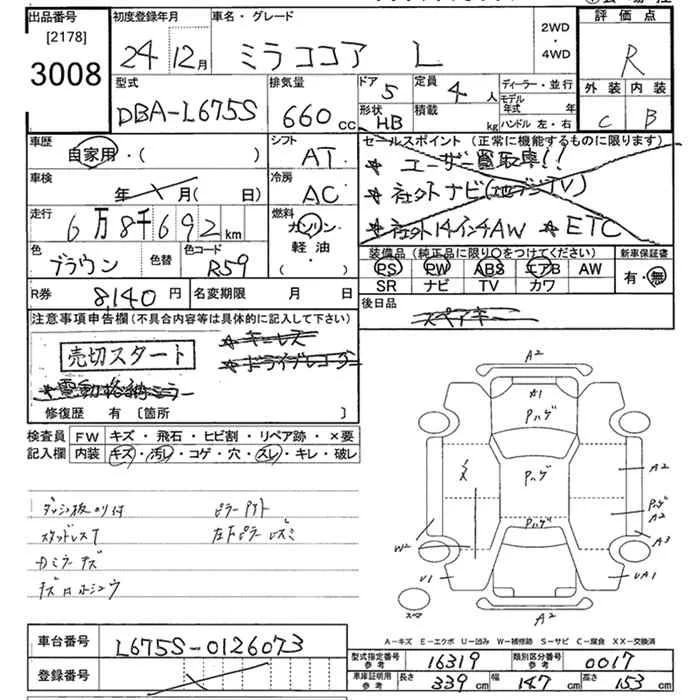 出品番号
[2178]
3008
初度登録年月
24年12月
車名・グレード
ミラココア L
2WD
・
4WD
評価点
R
外装 内装
C B
型式
DBA-L675S
排気量
660cc
ドア
5
定員
4人
形状
HB
積載
kg
ディーラー・並行
モデル年式 年
ハンドル 左・右
車歴
自家用・( )
シフト
AT
セールスポイント (正常に機能するものに限ります)
★ ユーザー買取車!!
★ 社外ナビ(地デジTV)
★ 社外14インチAW ★ ETC
車検
年 月( 日)
冷房
AC
走行
6万8千692km
燃料
ガソリン
軽油
・( )
色
ブラウン
色替
色コード
R59
装備品 (純正品に限り○をつけてください)
PS PW ABS エアB AW
SR ナビ TV カワ
新車保証書
有・無
R券
8,140円
名変期限 月 日
後日品
スペアキー
注意事項申告欄(不具合内容等は具体的に記入して下さい)
売切スタート
★キーレス
★ドライブレコーダー
★電動格納ミラー
修復歴 有 [箇所 ]
検査員
記入欄
FW キズ・飛石・ヒビ割・リペア跡・×要
内装 キズ・汚レ・コゲ・穴・スレ・キレ・破レ
ダッシュ板のり付
ピラーアト
スタッドレスT
左下ピラーズミ
カミラーキズ
キズロホシュウ
A2
A1
Pハゲ
Pハゲ
Pハゲ
A2
Pハゲ
A2
A3
W2
U1
UA1
A2
スペア
A-キズ E-エクボ U-凹み W-補修跡 S-サビ C-腐食 XX-交換済
車台番号
L675S-0126073
登録番号
型式指定番号
参考
16319
類別区分番号
参考
0017
車庫証明用
参考
長さ 339cm
幅 147cm
高さ 153cm